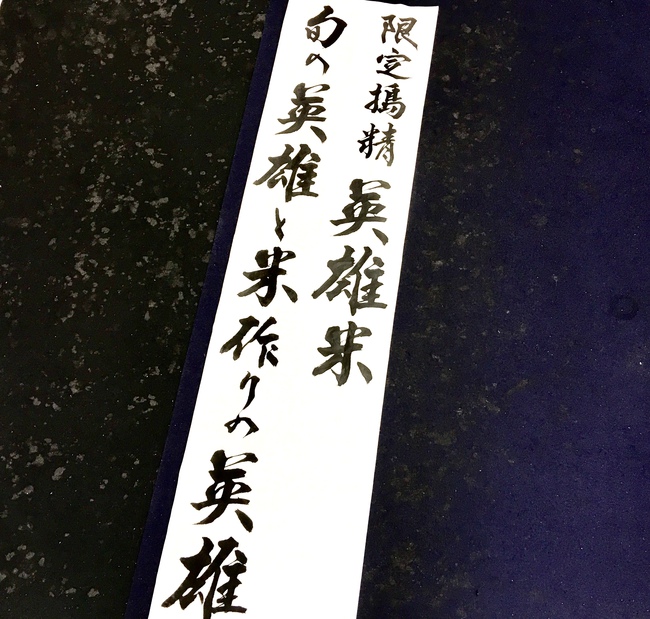 限定搗精 英雄米
旬の英雄と米作りの英雄